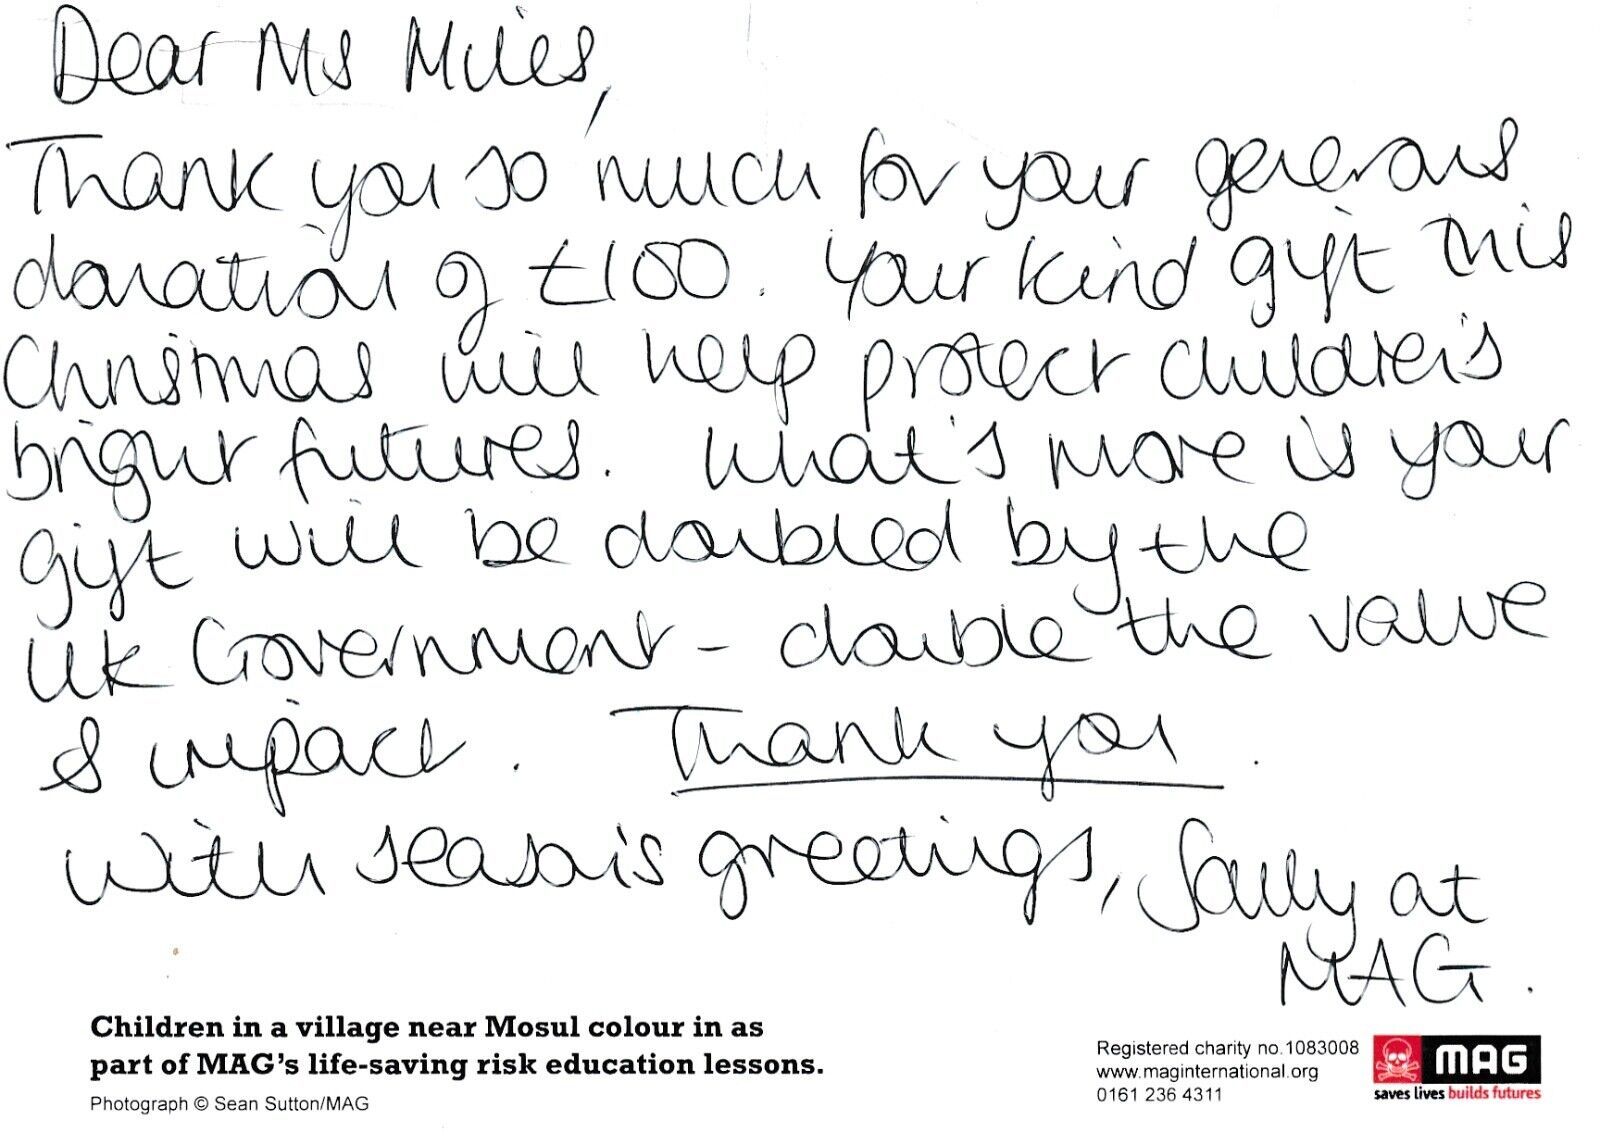 Dear Ms Miles,
Thank you so much for your generous
donation of £100. Your kind gift this
Christmas will help protect children's
bright futures. What's more is your
gift will be doubled by the
UK Government - double the value
& impact. Thank you.
With season's greetings, Sally at
MAG.
Children in a village near Mosul colour in as
part of MAG's life-saving risk education lessons.
Photograph © Sean Sutton/MAG
Registered charity no.1083008
www.maginternational.org
0161 236 4311
MAG
saves lives builds futures